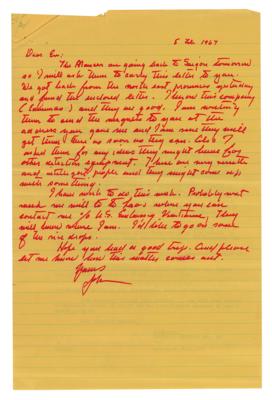 5 Feb 1967
Dear Ed:
The Monears are going back to Saigon tomorrow
so I will ask them to carry this letter to you.
We got back from the north east provinces yesterday
and found the enclosed letter. I know this company
(Calumas) and they are good. I am writing
them to send the magnets to you at the
address you gave me and I am sure they will
get them there as soon as they can. Also I
asked them for any ideas they might have for
other detection equipment. These are very versatile
and intelligent people and they might come up
with something.
I have work to do this week. Probably next
week we will go to Laos where you can
contact me c/o U.S. Embassy Vientiane. They
will know where I am. I'd like to go on some
of the rice drops.
Hope you had a good trip. And please
let me know how this matter comes out.
Yours
John